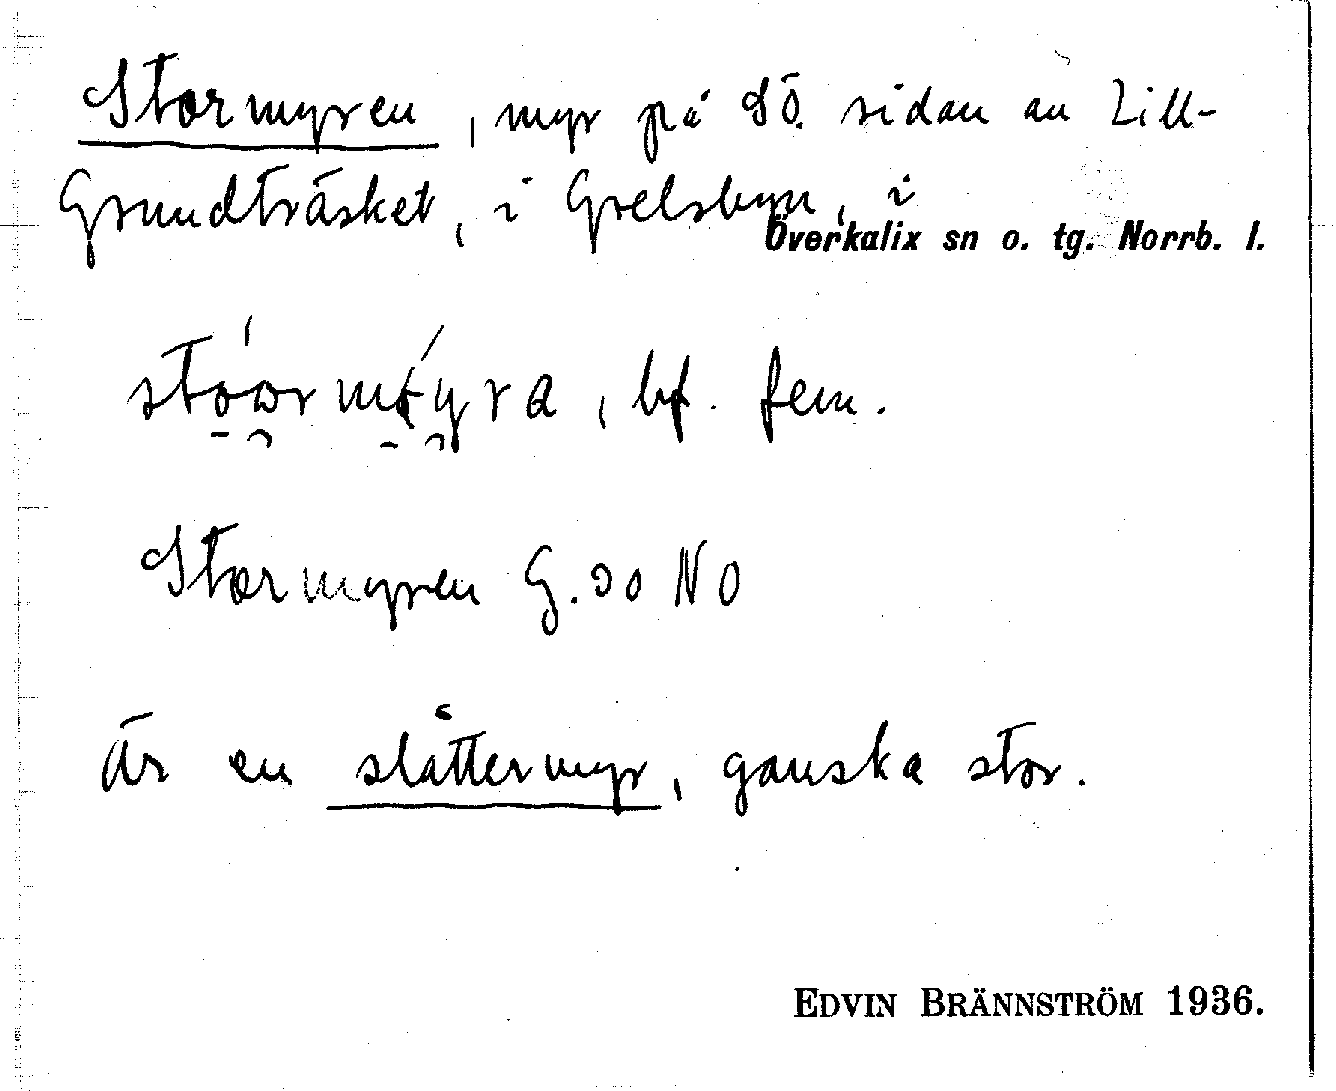 Stormyren, myr på SÖ. sidan av Lill-
Grundträsket, i Grelsbyn, i
Överkalix sn o. tg. Norrb. l.
bf. fem.
Stormyren G. so NO
är en slåttermyr, ganska stor.
EDVIN BRÄNNSTRÖM 1936.